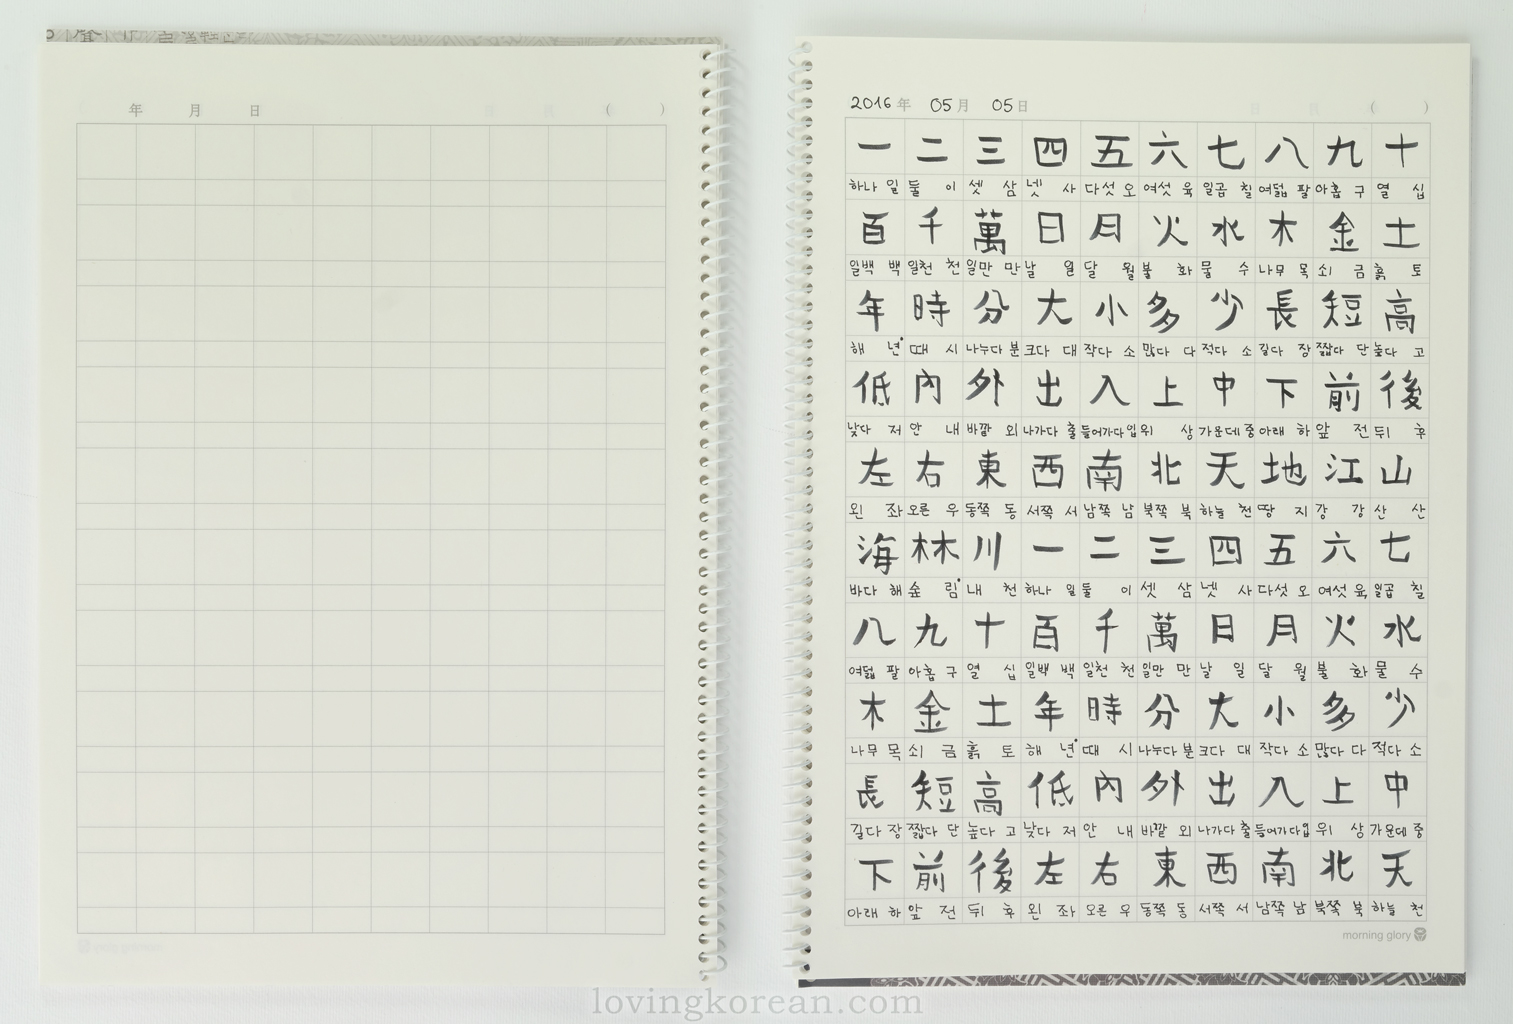 年 月 日 ( )
2016年 05月 05日 ( )
一 二 三 四 五 六 七 八 九 十
하나 일 둘 이 셋 삼 넷 사 다섯 오 여섯 육 일곱 칠 여덟 팔 아홉 구 열 십
百 千 萬 日 月 火 水 木 金 土
일백 백 일천 천 일만 만 날 일 달 월 불 화 물 수 나무 목 쇠 금 흙 토
年 時 分 大 小 多 少 長 短 高
해 년 때 시 나누다 분 크다 대 작다 소 많다 다 적다 소 길다 장 짧다 단 높다 고
低 內 外 出 入 上 中 下 前 後
낮다 저 안 내 바깥 외 나가다 출 들어가다 입 위 상 가운데 중 아래 하 앞 전 뒤 후
左 右 東 西 南 北 天 地 江 山
왼 좌 오른 우 동쪽 동 서쪽 서 남쪽 남 북쪽 북 하늘 천 땅 지 강 강 산 산
海 林 川 一 二 三 四 五 六 七
바다 해 숲 림 내 천 하나 일 둘 이 셋 삼 넷 사 다섯 오 여섯 육 일곱 칠
八 九 十 百 千 萬 日 月 火 水
여덟 팔 아홉 구 열 십 일백 백 일천 천 일만 만 날 일 달 월 불 화 물 수
木 金 土 年 時 分 大 小 多 少
나무 목 쇠 금 흙 토 해 년 때 시 나누다 분 크다 대 작다 소 많다 다 적다 소
長 短 高 低 內 外 出 入 上 中
길다 장 짧다 단 높다 고 낮다 저 안 내 바깥 외 나가다 출 들어가다 입 위 상 가운데 중
下 前 後 左 右 東 西 南 北 天
아래 하 앞 전 뒤 후 왼 좌 오른 우 동쪽 동 서쪽 서 남쪽 남 북쪽 북 하늘 천
morning glory
lovingkorean.com